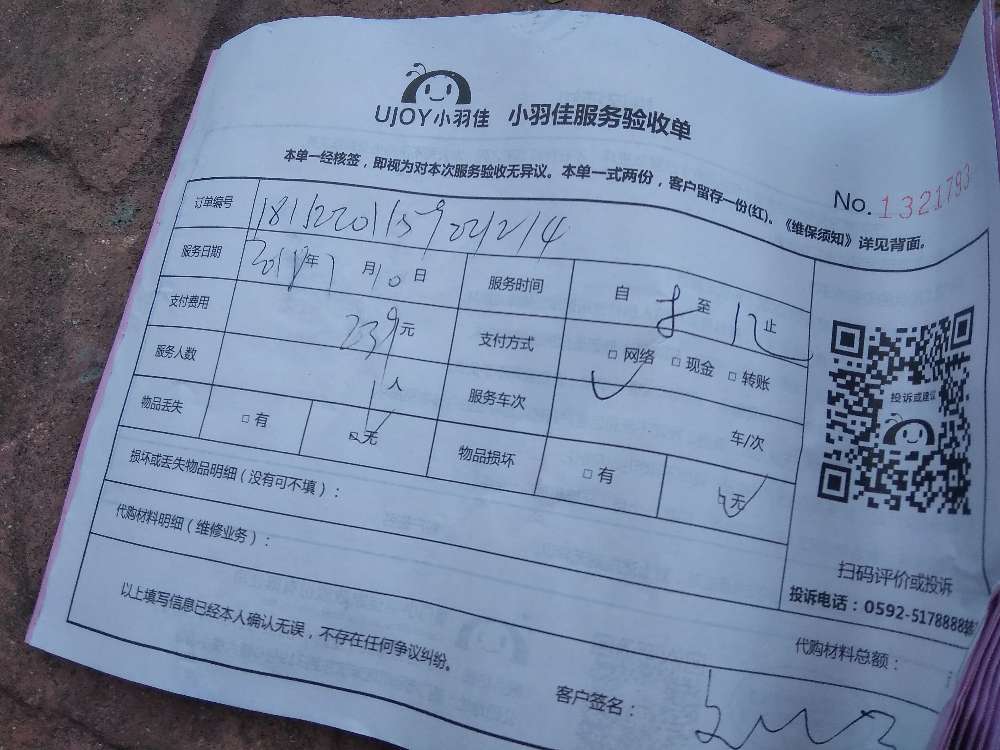 UJOY小羽佳 小羽佳服务验收单
本单一经核签，即视为对本次服务验收无异议。本单一式两份，客户留存一份(红)。《维保须知》详见背面。
No. 1321793
订单编号
服务日期 年 7 月 10 日 服务时间 自 至 12 止
支付费用 239 元 支付方式 □ 网络 □ 现金 □ 转账
服务人数 1 人 服务车次 车/次
物品丢失 □ 有 □ 无 物品损坏 □ 有 □ 无
损坏或丢失物品明细（没有可不填）：
代购材料明细（维修业务）：
投诉或建议
扫码评价或投诉
投诉电话：0592-5178888
代购材料总额：
以上填写信息已经本人确认无误，不存在任何争议纠纷。
客户签名：